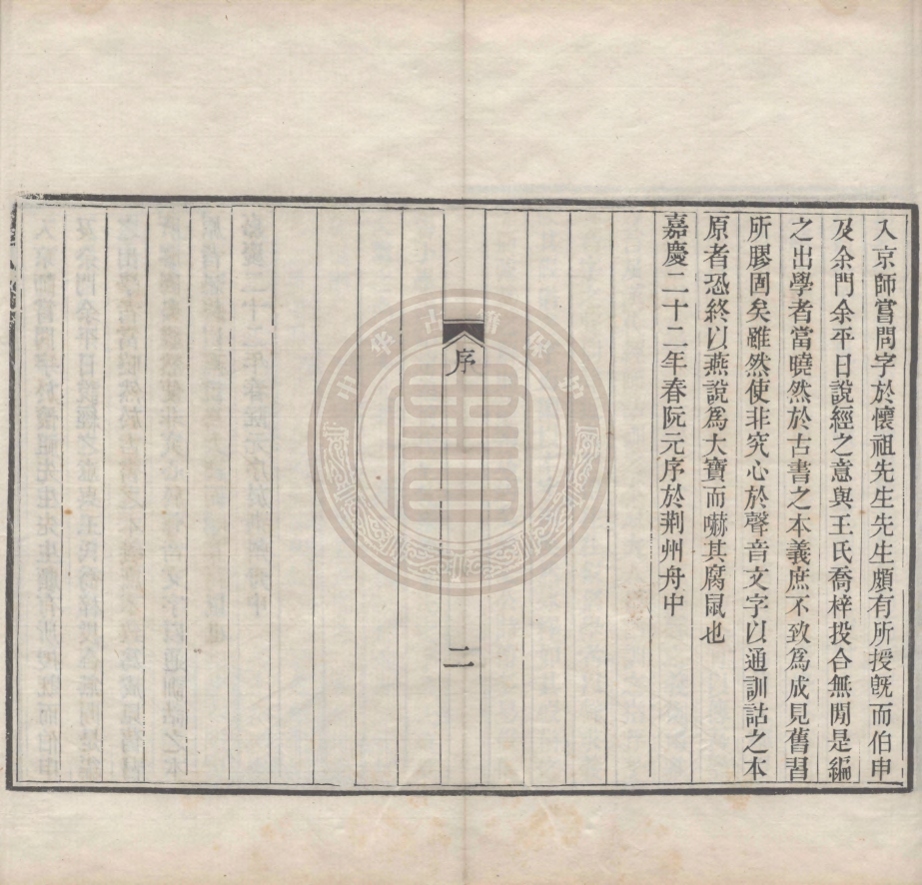 入京師嘗問字於懷祖先生先生頗有所授旣而伯申
及余門余平日說經之意與王氏喬梓投合無閒是編
之出學者當曉然於古書之本義庶不致爲成見舊習
所膠固矣雖然使非究心於聲音文字以通訓詁之本
原者恐終以燕說爲大寶而嚇其腐鼠也
嘉慶二十二年春阮元序於荆州舟中
序
二
中华古籍保护